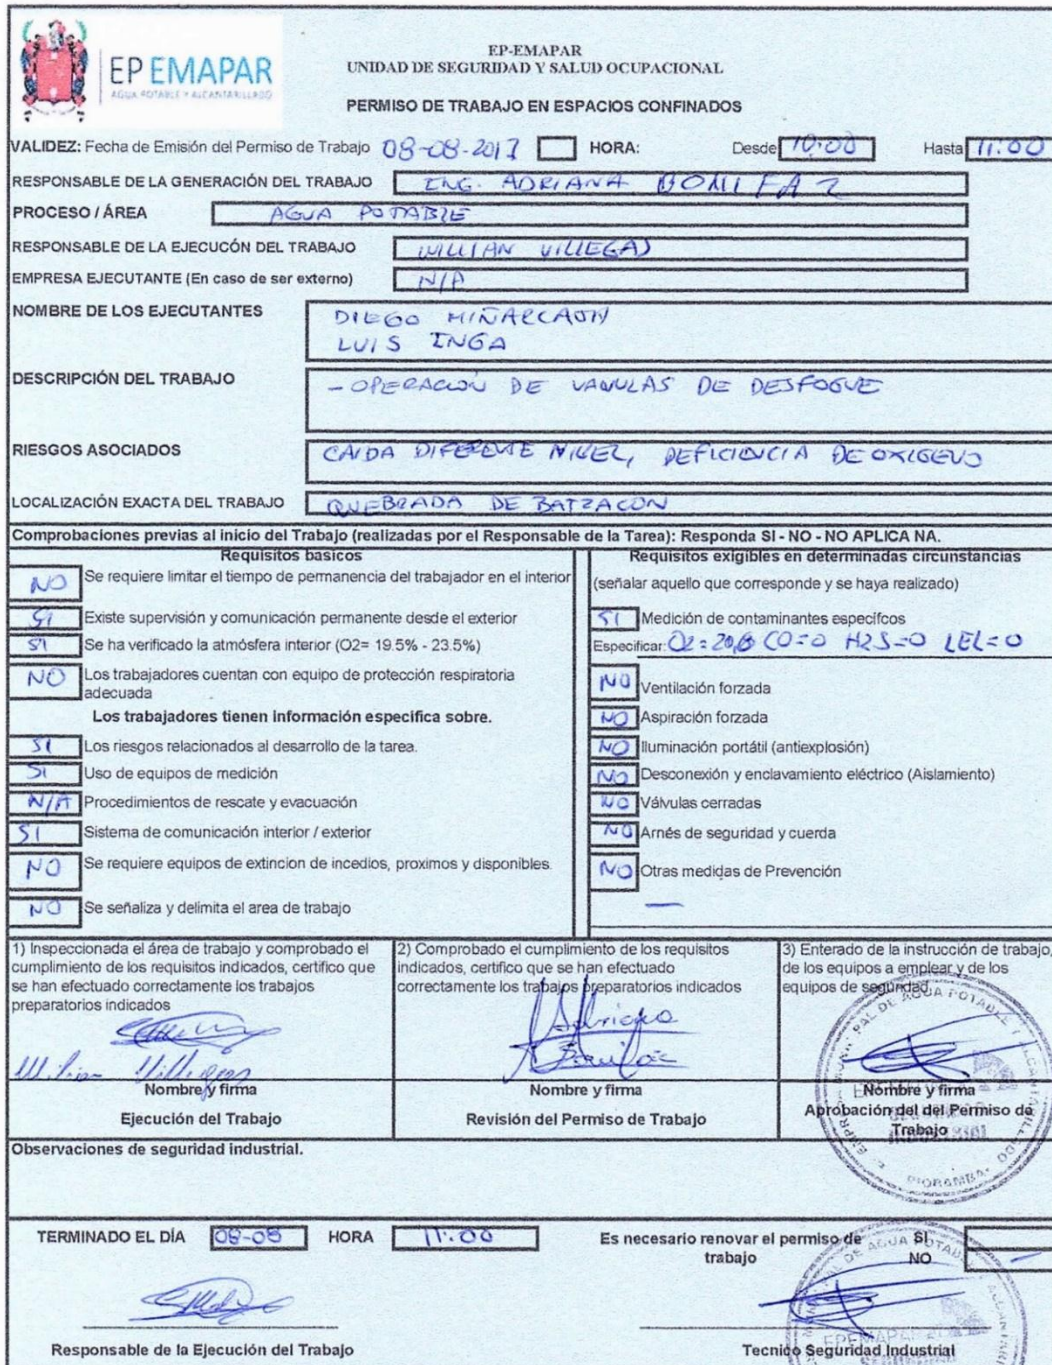 EP EMAPAR
AGUA POTABLE Y ALCANTARILLADO
EP-EMAPAR
UNIDAD DE SEGURIDAD Y SALUD OCUPACIONAL
PERMISO DE TRABAJO EN ESPACIOS CONFINADOS
VALIDEZ: Fecha de Emisión del Permiso de Trabajo 08-08-2017 HORA: Desde 10:00 Hasta 11:00
RESPONSABLE DE LA GENERACIÓN DEL TRABAJO ING. ADRIANA BONIFAZ
PROCESO / ÁREA AGUA POTABLE
RESPONSABLE DE LA EJECUCÓN DEL TRABAJO WILLIAN VILLEGAS
EMPRESA EJECUTANTE (En caso de ser externo) N/A
NOMBRE DE LOS EJECUTANTES DIEGO MIÑARCAJA
LUIS INGA
DESCRIPCIÓN DEL TRABAJO - OPERACION DE VAVULAS DE DESFOGUE
RIESGOS ASOCIADOS CAIDA DIFERENTE NIVEL, DEFICIENCIA DE OXIGENO
LOCALIZACIÓN EXACTA DEL TRABAJO QUEBRADA DE BATZACON
Comprobaciones previas al inicio del Trabajo (realizadas por el Responsable de la Tarea): Responda SI - NO - NO APLICA NA.
Requisitos basicos
NO Se requiere limitar el tiempo de permanencia del trabajador en el interior
SI Existe supervisión y comunicación permanente desde el exterior
SI Se ha verificado la atmósfera interior (O2= 19.5% - 23.5%)
NO Los trabajadores cuentan con equipo de protección respiratoria
adecuada
Los trabajadores tienen información especifica sobre.
SI Los riesgos relacionados al desarrollo de la tarea.
SI Uso de equipos de medición
N/A Procedimientos de rescate y evacuación
SI Sistema de comunicación interior / exterior
NO Se requiere equipos de extincion de incedios, proximos y disponibles.
NO Se señaliza y delimita el area de trabajo
Requisitos exigibles en determinadas circunstancias
(señalar aquello que corresponde y se haya realizado)
SI Medición de contaminantes específcos
Especificar: O2=20,8 CO=0 H2S=0 LEL=0
NO Ventilación forzada
NO Aspiración forzada
NO Iluminación portátil (antiexplosión)
NO Desconexión y enclavamiento eléctrico (Aislamiento)
NO Válvulas cerradas
NO Arnés de seguridad y cuerda
NO Otras medidas de Prevención
—
1) Inspeccionada el área de trabajo y comprobado el
cumplimiento de los requisitos indicados, certifico que
se han efectuado correctamente los trabajos
preparatorios indicados
Wilian Villegas
Nombre y firma
Ejecución del Trabajo
2) Comprobado el cumplimiento de los requisitos
indicados, certifico que se han efectuado
correctamente los trabajos preparatorios indicados
Adriana
Bonifaz
Nombre y firma
Revisión del Permiso de Trabajo
3) Enterado de la instrucción de trabajo,
de los equipos a emplear y de los
equipos de seguridad
Nombre y firma
Aprobación del del Permiso de
Trabajo
Observaciones de seguridad industrial.
TERMINADO EL DÍA 08-08 HORA 11:00 Es necesario renovar el permiso de SI
trabajo NO —
Responsable de la Ejecución del Trabajo Tecnico Seguridad Industrial